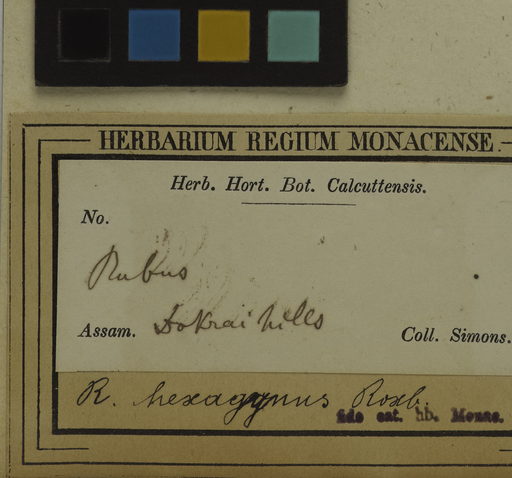 HERBARIUM REGIUM MONACENSE.
Herb. Hort. Bot. Calcuttensis.
No.
Rubus
Assam. Dokrai hills
Coll. Simons.
R. hexagynus Roxb.
fide cat. hb. Monac.